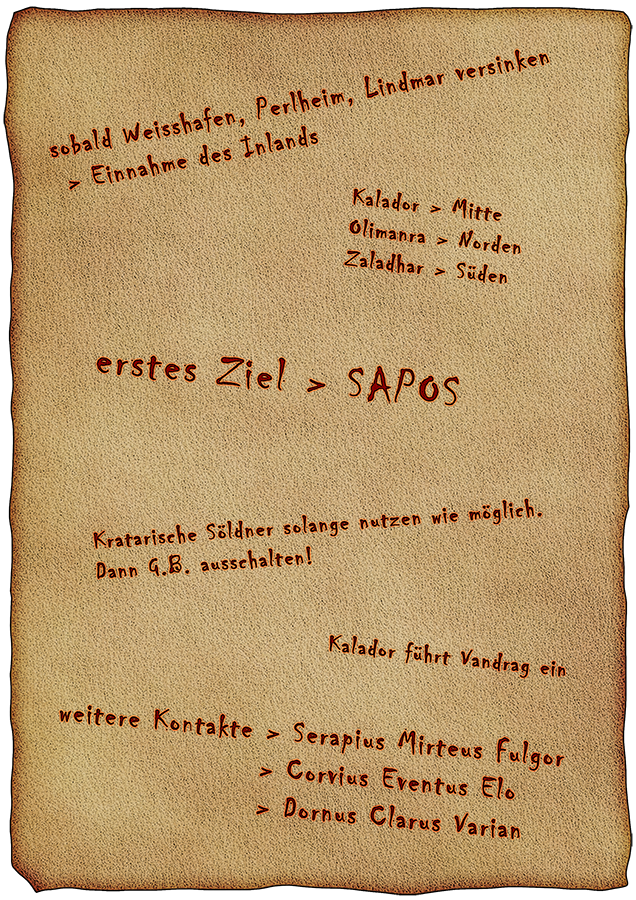 sobald Weisshafen, Perlheim, Lindmar versinken
> Einnahme des Inlands
Kalador > Mitte
Olimanra > Norden
Zaladhar > Süden
erstes Ziel > SAPOS
Kratarische Söldner solange nutzen wie möglich.
Dann G.B. ausschalten!
Kalador führt Vandrag ein
weitere Kontakte > Serapius Mirteus Fulgor
> Corvius Eventus Elo
> Dornus Clarus Varian